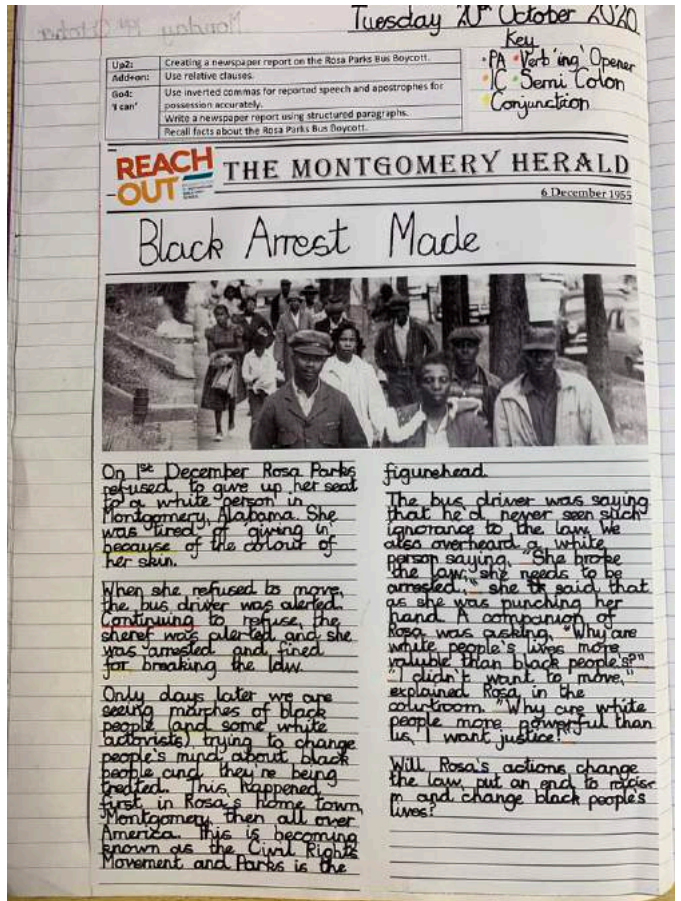 Tuesday 20th October 2020
Key
• PA • Verb 'ing' Opener
• IC • Semi Colon
Conjunction
Up2: Creating a newspaper report on the Rosa Parks Bus Boycott.
Add+on: Use relative clauses.
Go4: Use inverted commas for reported speech and apostrophes for
'I can' possession accurately.
Write a newspaper report using structured paragraphs.
Recall facts about the Rosa Parks Bus Boycott.
REACH
OUT
THE MONTGOMERY HERALD
6 December 1955
Black Arrest Made
On 1st December Rosa Parks
refused to give up her seat
to a white person in
Montgomery, Alabama. She
was tired of 'giving in'
because of the colour of
her skin.
When she refused to move,
the bus driver was alerted.
Continuing to refuse, the
sheref was alerted and she
was arrested and fined
for breaking the law.
Only days later we are
seeing marches of black
people (and some white
actovists) trying to change
people's mind about black
people and they're being
treated. This happened
first in Rosa's home town,
Montgomery, then all over
America. This is becoming
known as the Civil Rights
Movement and Parks is the
figurehead.
The bus driver was saying
that he'd never seen such
ignorance to the law. We
also overheard a white
person saying, "She broke
the law; she needs to be
arrested," she said that
as she was punching her
hand. A companion of
Rosa was asking, "Why are
white people's lives more
valuble than black people's?"
"I didn't want to move,"
explained Rosa in the
courtroom. "Why are white
people more powerful than
us, I want justice!"
Will Rosa's actions change
the law, put an end to racise
m and change black people's
lives?